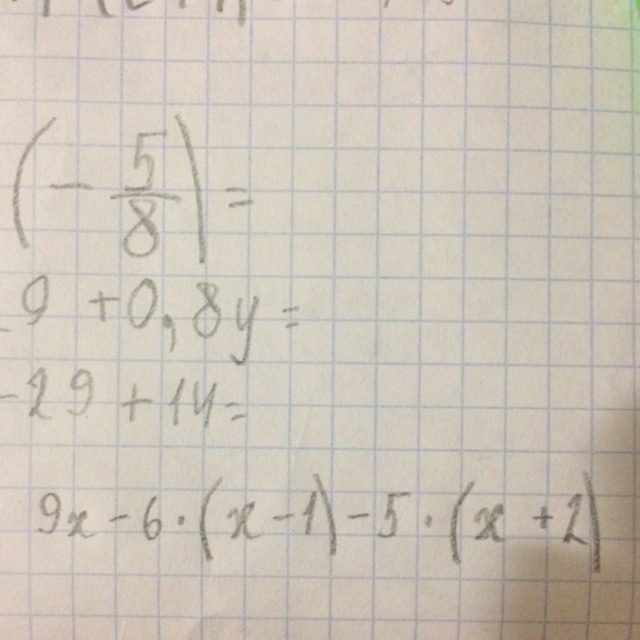 (- 5/8) =
-9 + 0,8y =
-29 + 14 =
9x - 6 · (x - 1) - 5 · (x + 2)